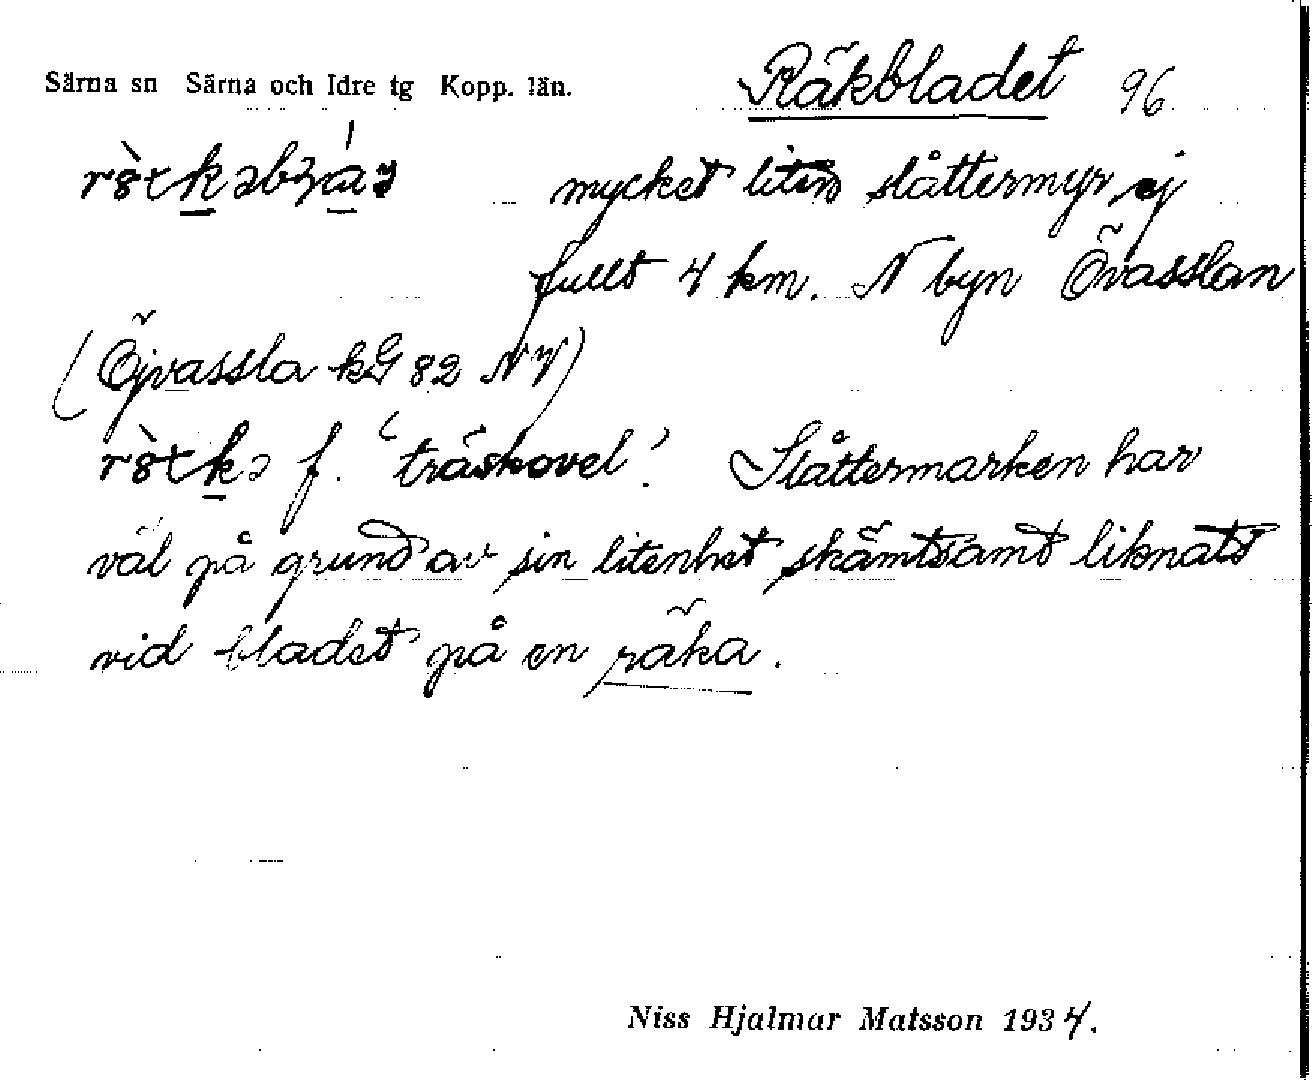 Särna sn Särna och Idre tg Kopp. län. Räkbladet 96
mycket liten slåttermyr, ej
fullt 4 km. N byn Övasslan
(Öjvassla kG 82 NV)
f. 'träskovel'. Slåttermarken har
väl på grund av sin litenhet skämtsamt liknats
vid bladet på en räka.
Niss Hjalmar Matsson 1934.